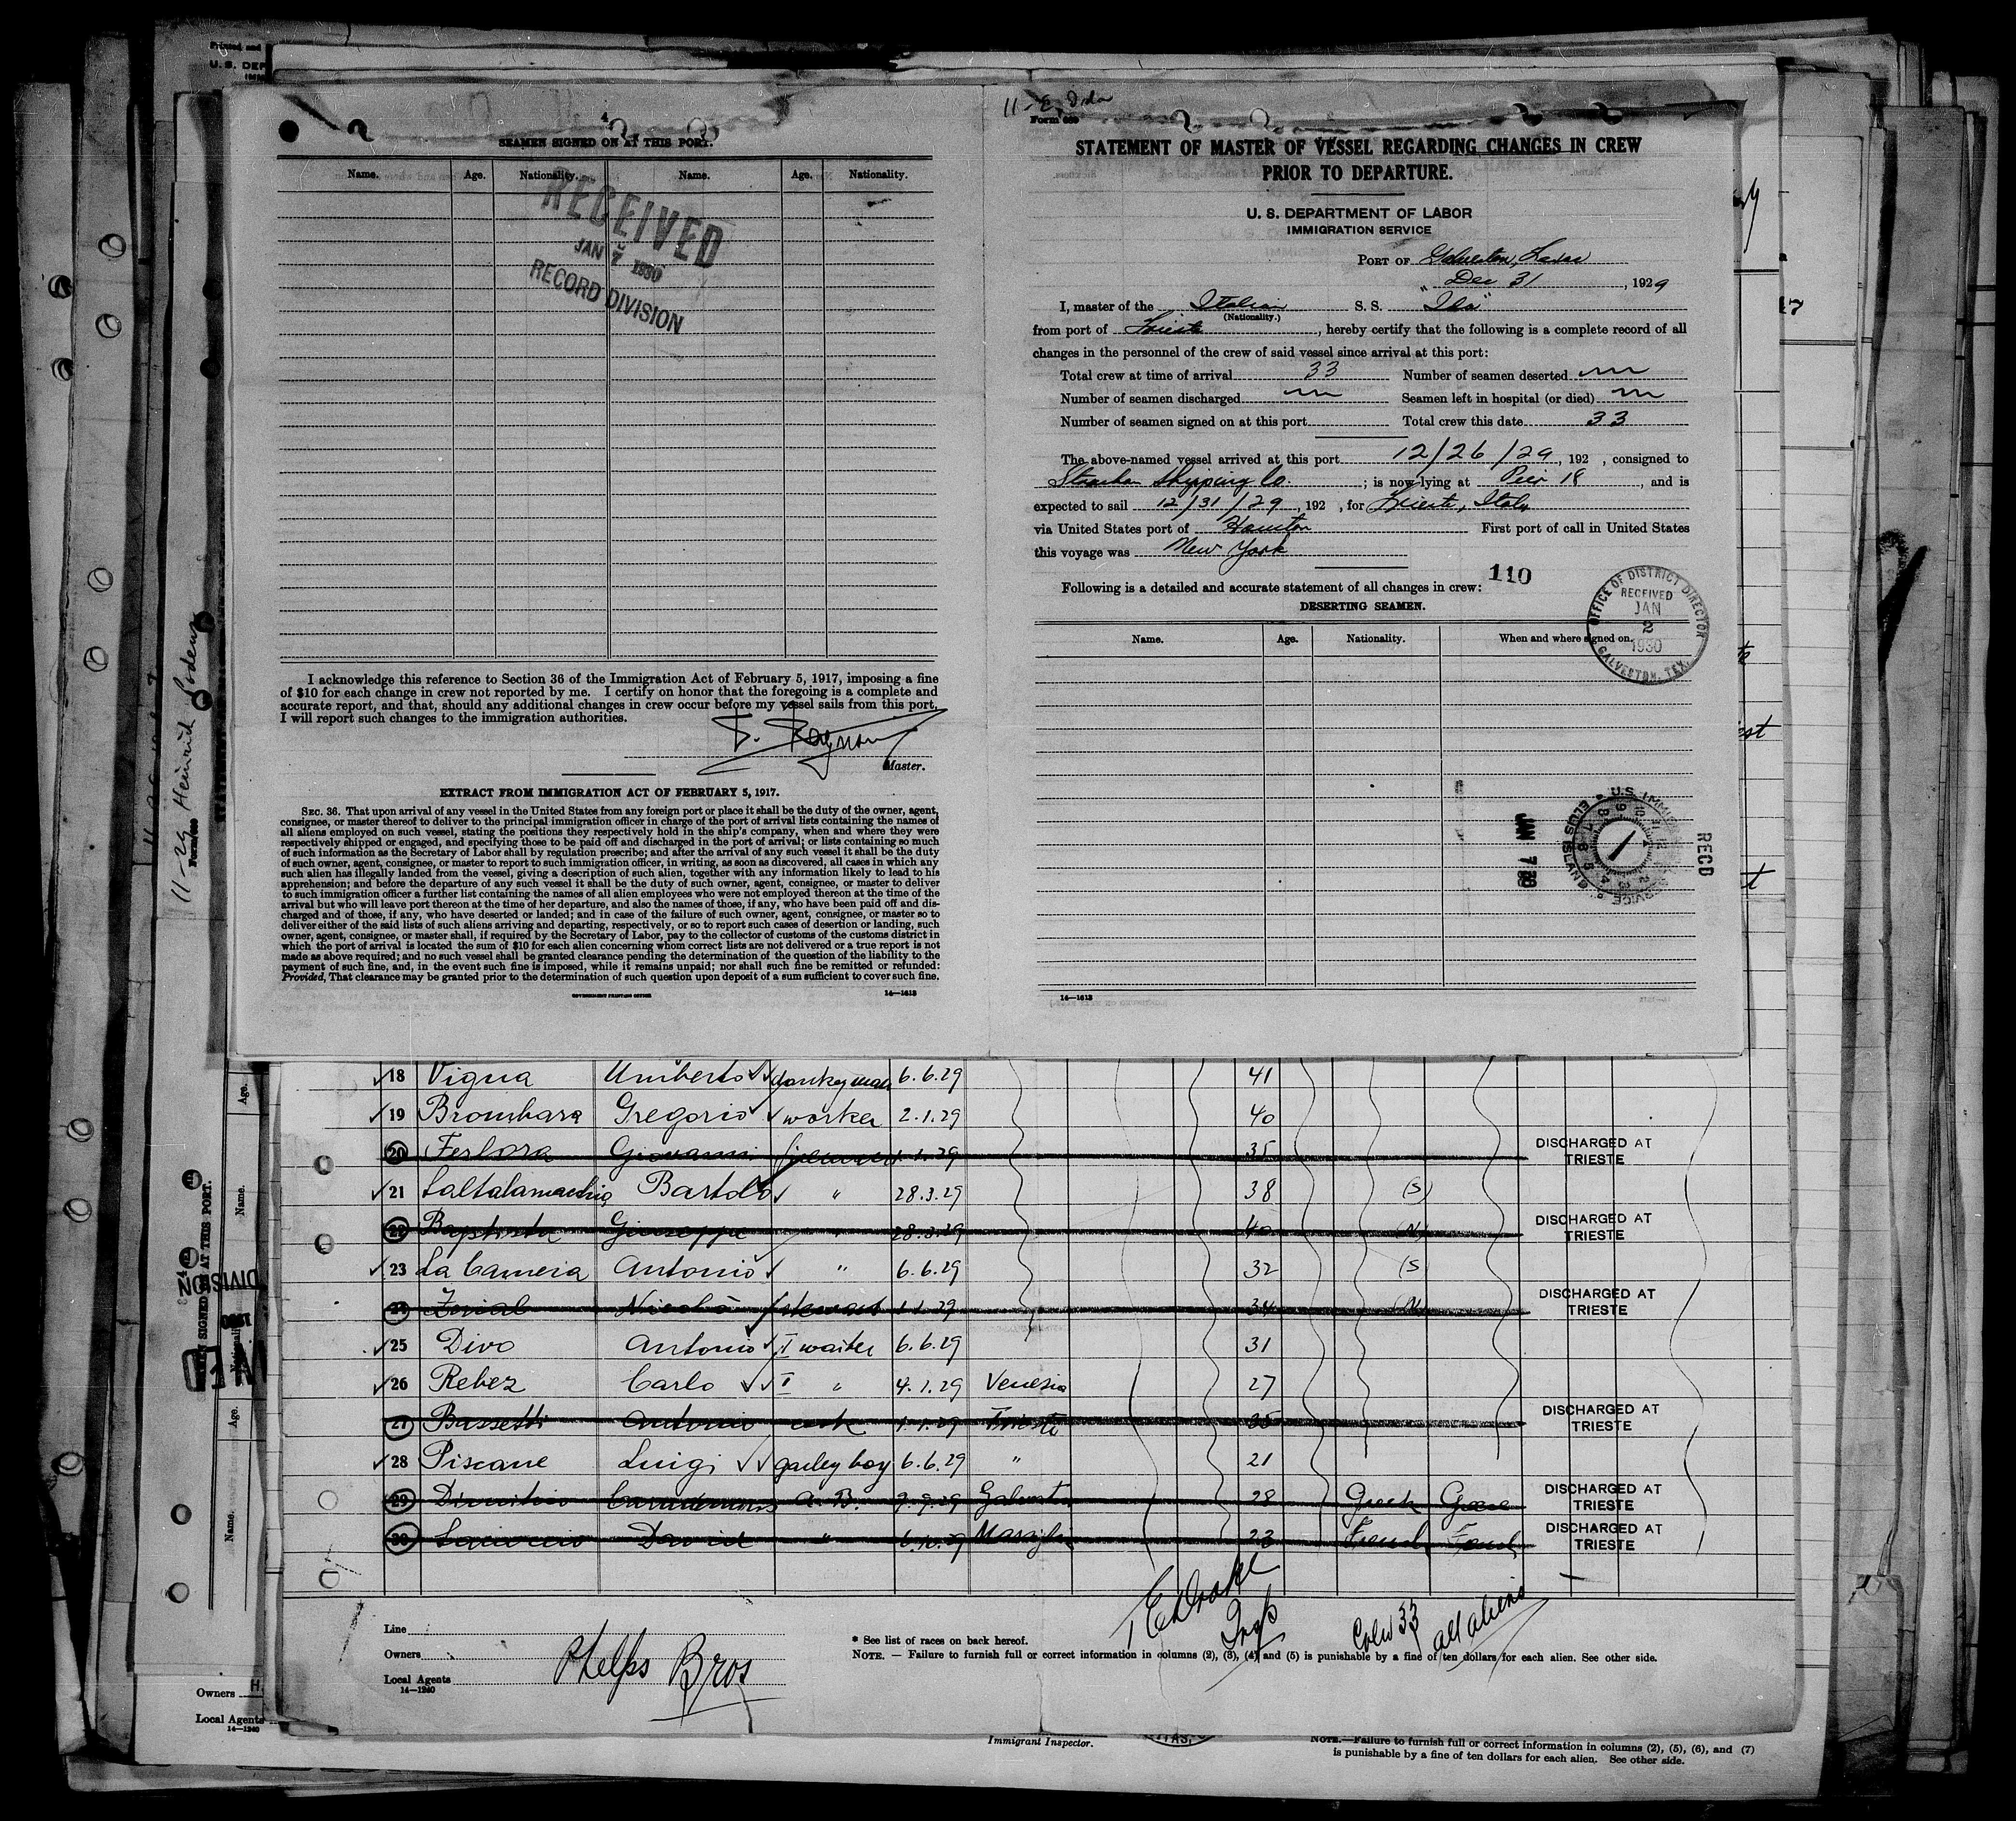 4
SEAMEN SIGNED ON AT THIS PORT.
Name. Age. Nationality. Name. Age. Nationality.
RECEIVED
JAN 7 1930
RECORD DIVISION
I acknowledge this reference to Section 36 of the Immigration Act of February 5, 1917, imposing a fine
of $10 for each change in crew not reported by me. I certify on honor that the foregoing is a complete and
accurate report, and that, should any additional changes in crew occur before my vessel sails from this port,
I will report such changes to the immigration authorities.
Master.
EXTRACT FROM IMMIGRATION ACT OF FEBRUARY 5, 1917.
SEC. 36. That upon arrival of any vessel in the United States from any foreign port or place it shall be the duty of the owner, agent,
consignee, or master thereof to deliver to the principal immigration officer in charge of the port of arrival lists containing the names of
all aliens employed on such vessel, stating the positions they respectively hold in the ship's company, when and where they were
respectively shipped or engaged, and specifying those to be paid off and discharged in the port of arrival; or lists containing so much
of such information as the Secretary of Labor shall by regulation prescribe; and after the arrival of any such vessel it shall be the duty
of such owner, agent, consignee, or master to report to such immigration officer, in writing, as soon as discovered, all cases in which any
such alien has illegally landed from the vessel, giving a description of such alien, together with any information likely to lead to his
apprehension; and before the departure of any such vessel it shall be the duty of such owner, agent, consignee, or master to deliver
to such immigration officer a further list containing the names of all alien employees who were not employed thereon at the time of the
arrival but who will leave port thereon at the time of her departure, and also the names of those, if any, who have been paid off and dis-
charged and of those, if any, who have deserted or landed; and in case of the failure of such owner, agent, consignee, or master so to
deliver either of the said lists of such aliens arriving and departing, respectively, or so to report such cases of desertion or landing, such
owner, agent, consignee, or master shall, if required by the Secretary of Labor, pay to the collector of customs of the customs district in
which the port of arrival is located the sum of $10 for each alien concerning whom correct lists are not delivered or a true report is not
made as above required; and no such vessel shall be granted clearance pending the determination of the question of the liability to the
payment of such fine, and, in the event such fine is imposed, while it remains unpaid; nor shall such fine be remitted or refunded:
Provided, That clearance may be granted prior to the determination of such question upon deposit of a sum sufficient to cover such fine.
GOVERNMENT PRINTING OFFICE 14—1613
11-E Ida
Form 689
STATEMENT OF MASTER OF VESSEL REGARDING CHANGES IN CREW
PRIOR TO DEPARTURE.
U. S. DEPARTMENT OF LABOR
IMMIGRATION SERVICE
PORT OF Galveston, Texas
Dec 31, 1929
I, master of the Italian S. S. "Ida"
(Nationality.)
from port of Trieste, hereby certify that the following is a complete record of all
changes in the personnel of the crew of said vessel since arrival at this port:
Total crew at time of arrival 33 Number of seamen deserted
Number of seamen discharged Seamen left in hospital (or died)
Number of seamen signed on at this port Total crew this date 33
The above-named vessel arrived at this port 12/26/29, 192 , consigned to
Strachan Shipping Co. ; is now lying at Pier 18, and is
expected to sail 12/31/29, 192 , for Trieste, Italy
via United States port of Houston First port of call in United States
this voyage was New York
110
Following is a detailed and accurate statement of all changes in crew:
DESERTING SEAMEN.
Name. Age. Nationality. When and where signed on.
OFFICE OF DISTRICT DIRECTOR
RECEIVED
JAN
2
1930
GALVESTON, TEX.
JAN 7 30
U.S. IMMIGRATION SERVICE ELLIS ISLAND
RECD
14—1613
18 Vigna Umberto donkeyman 6.6.29 41
19 Brombara Gregorio worker 2.1.29 40
20 Ferlora Giovanni fireman 1.1.29 35 DISCHARGED AT TRIESTE
21 Saltalamachia Bartolo " 28.3.29 38 (S)
22 Baptista Giuseppe " 28.3.29 40 (N) DISCHARGED AT TRIESTE
23 La Camera Antonio " 6.6.29 32 (S)
24 Zerial Nicolò steward 1.1.29 34 (N) DISCHARGED AT TRIESTE
25 Divo Antonio I waiter 6.6.29 31
26 Rebez Carlo I " 4.1.29 Venezia 27
27 Bassetti Antonio cook 1.1.29 Trieste 35 DISCHARGED AT TRIESTE
28 Piscane Luigi galley boy 6.6.29 " 21
29 A. B. 9.9.29 Galveston 28 Greek Greece DISCHARGED AT TRIESTE
30 David " 6.10.29 Marsiglia 23 French DISCHARGED AT TRIESTE
Line
Owners
Local Agents Phelps Bros
14—1240
E Drake
Insp
Crew 33 all aliens
* See list of races on back hereof.
NOTE. — Failure to furnish full or correct information in columns (2), (3), (4) and (5) is punishable by a fine of ten dollars for each alien. See other side.
Immigrant Inspector.
NOTE.—Failure to furnish full or correct information in columns (2), (5), (6), and (7)
is punishable by a fine of ten dollars for each alien. See other side.
Owners H
Local Agents
14—1240
11-29 Heinrich
Printed and
U. S. DEP
IMM
Age.
Name.
SEAMEN SIGNED ON AT THIS PORT.
Age.
Name.